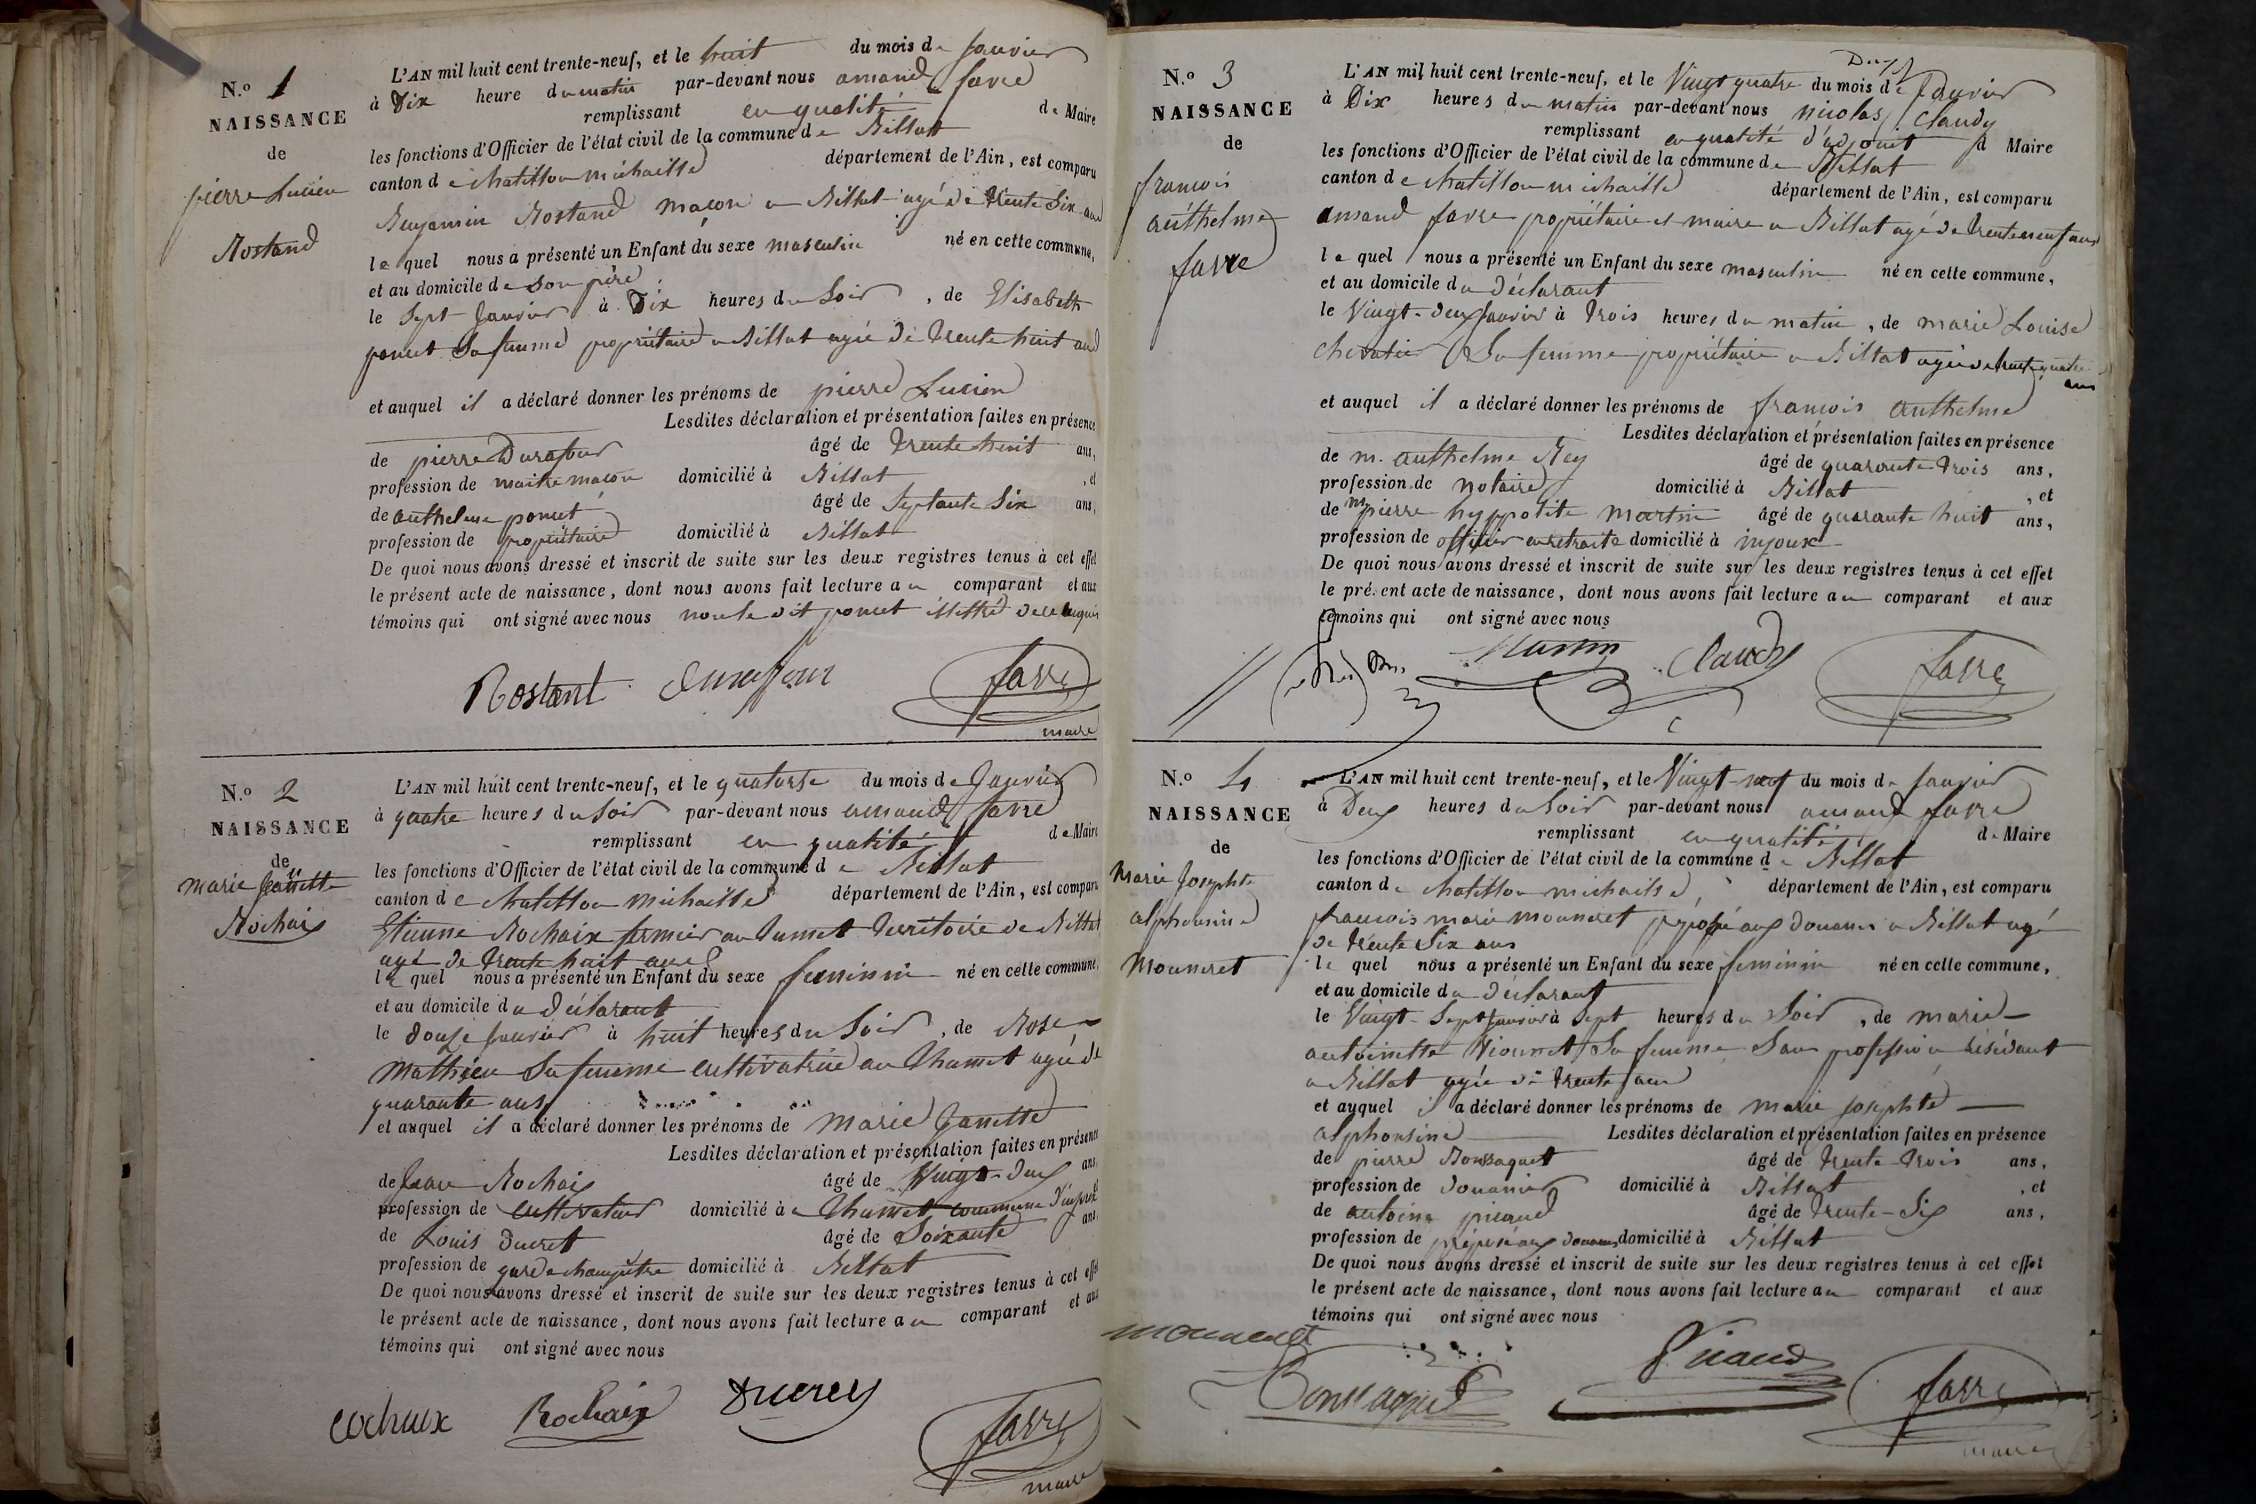 N.o 1
NAISSANCE
de
pierre Lucien
Rostand
L'AN mil huit cent trente-neuf, et le huit du mois de Janvier
à Dix heure du matin par-devant nous amand favre
remplissant en qualité de Maire
les fonctions d'Officier de l'état civil de la commune de Billat
canton de chatillon michaille département de l'Ain, est comparu
Benjamin Rostand maçon a Billat agé de trente six ans
lequel nous a présenté un Enfant du sexe masculin né en cette commune,
et au domicile de son père
le sept Janvier à Dix heures du Soir, de Elisabeth
poncet Sa femme propriétaire a Billat agée de trente huit ans
et auquel il a déclaré donner les prénoms de pierre Lucien
Lesdites déclaration et présentation faites en présence
de pierre Durafour âgé de trente huit ans,
profession de maitre maçon domicilié à Billat, et
de anthelme poncet âgé de Septante Six ans,
profession de propriétaire domicilié à Billat
De quoi nous avons dressé et inscrit de suite sur les deux registres tenus à cet effet
le présent acte de naissance, dont nous avons fait lecture au comparant et aux
témoins qui ont signé avec nous non le dit poncet illettré de ce requis
Rostant Durafour favre
maire
N.o 2
NAISSANCE
de
marie Janette
Rochaix
L'AN mil huit cent trente-neuf, et le quatorze du mois de Janvier
à quatre heures du Soir par-devant nous amand favre
remplissant en qualité de Maire
les fonctions d'Officier de l'état civil de la commune de Billat
canton de chatillon michaille département de l'Ain, est comparu
Etienne Rochaix fermier au territoire de Billat
agé de trente huit ans
lequel nous a présenté un Enfant du sexe feminin né en cette commune,
et au domicile du déclarant
le douze Janvier à huit heures du Soir, de Rose
Mathieu Sa femme cultivatrice au Thamet agée de
quarante ans
et auquel il a déclaré donner les prénoms de marie Janette
Lesdites déclaration et présentation faites en présence
de Jean Rochaix âgé de Vingt-deux ans,
profession de cultivateur domicilié à Thamet commune
de Louis Ducret âgé de Soixante ans,
profession de garde champêtre domicilié à Billat
De quoi nous avons dressé et inscrit de suite sur les deux registres tenus à cet effet
le présent acte de naissance, dont nous avons fait lecture au comparant et aux
témoins qui ont signé avec nous
Rochaix Ducrey favre
maire
N.o 3
NAISSANCE
de
francois
anthelme
favre
L'AN mil huit cent trente-neuf, et le Vingt quatre du mois de Janvier
à Dix heures du matin par-devant nous nicolas Claudy
remplissant en qualité d'adjoint d Maire
les fonctions d'Officier de l'état civil de la commune de Billat
canton de chatillon michaille département de l'Ain, est comparu
amand favre propriétaire et maire a Billat agé de trente neuf ans
lequel nous a présenté un Enfant du sexe masculin né en cette commune,
et au domicile du déclarant
le Vingt-deux Janvier à trois heures du matin, de marie Louise
chevalier Sa femme propriétaire a Billat agée de trente quatre
ans
et auquel il a déclaré donner les prénoms de francois anthelme
Lesdites déclaration et présentation faites en présence
de m. anthelme Rey âgé de quarante trois ans,
profession de notaire domicilié à Billat, et
de m pierre hyppolite martin âgé de quarante huit ans,
profession de officier en retraite domicilié à injoux
De quoi nous avons dressé et inscrit de suite sur les deux registres tenus à cet effet
le présent acte de naissance, dont nous avons fait lecture au comparant et aux
témoins qui ont signé avec nous
Martin Claudy favre
N.o 4
NAISSANCE
de
Marie Josephte
alphonsine
Mouneret
L'AN mil huit cent trente-neuf, et le Vingt-neuf du mois de Janvier
à Deux heures du Soir par-devant nous amand favre
remplissant en qualité de Maire
les fonctions d'Officier de l'état civil de la commune de Billat
canton de chatillon michaille département de l'Ain, est comparu
francois marie mouneret préposé aux douanes a Billat agé
de trente Six ans
lequel nous a présenté un Enfant du sexe feminin né en cette commune,
et au domicile du déclarant
le Vingt-Sept Janvier à Sept heures du Soir, de marie
antoinette Sa femme Sans profession résidant
a Billat agée de trente ans
et auquel il a déclaré donner les prénoms de marie Josephte
alphonsine Lesdites déclaration et présentation faites en présence
de pierre Bonsaquet âgé de trente-trois ans,
profession de douanier domicilié à Billat, et
de antoine picaud âgé de trente-Six ans,
profession de préposé aux douanes domicilié à Billat
De quoi nous avons dressé et inscrit de suite sur les deux registres tenus à cet effet
le présent acte de naissance, dont nous avons fait lecture au comparant et aux
témoins qui ont signé avec nous
mouneret
Bonsaquet Picaud favre
maire